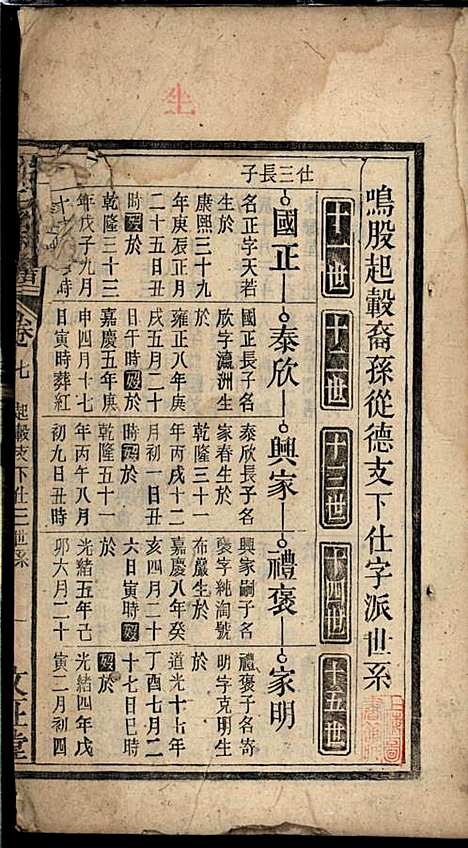 鳴股起轂裔孫從德支下仕字派世系
十一世
十二世
十三世
十四世
十五世
仕三長子
國正
泰欣
興家
禮褒
家明
名正字天若
生於
康熙三十九
年庚辰正月
二十五日丑
時歿於
乾隆三十三
年戊子九月
時
國正長子名
欣字瀛洲生
於
雍正八年庚
戌五月二十
日午時歿於
嘉慶五年庚
申四月十七
日寅時葬紅
泰欣長子名
家春生於
乾隆三十一
年丙戌十二
月初一日丑
時歿於
乾隆五十一
年丙午八月
初九日丑時
興家嗣子名
褒字純淘號
布嚴生於
嘉慶八年癸
亥四月二十
六日寅時歿
於
光緒五年己
卯六月二十
禮褒子名寄
明字克明生
於
道光十七年
丁酉七月二
十七日巳時
歿於
光緒四年戊
寅二月初四
卷七
起轂支下仕三世系
一
文在堂